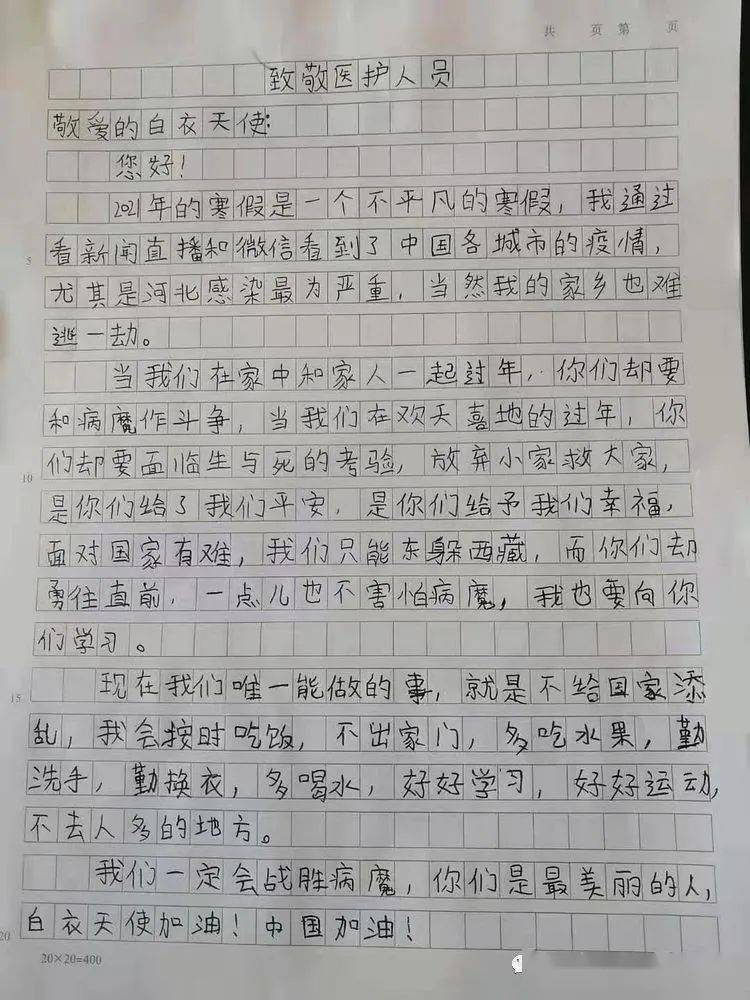 共 页 第 页
致敬医护人员
敬爱的白衣天使:
您好!
2021年的寒假是一个不平凡的寒假,我通过
看新闻直播和微信看到了中国各城市的疫情,
尤其是河北感染最为严重,当然我的家乡也难
逃一劫。
当我们在家中和家人一起过年,你们却要
和病魔作斗争,当我们在欢天喜地的过年,你
们却要面临生与死的考验,放弃小家救大家,
是你们给了我们平安,是你们给予我们幸福,
面对国家有难,我们只能东躲西藏,而你们却
勇往直前,一点儿也不害怕病魔,我也要向你
们学习。
现在我们唯一能做的事,就是不给国家添
乱,我会按时吃饭,不出家门,多吃水果,勤
洗手,勤换衣,多喝水,好好学习,好好运动,
不去人多的地方。
我们一定会战胜病魔,你们是最美丽的人,
白衣天使加油!中国加油!
5
10
15
20
20×20=400